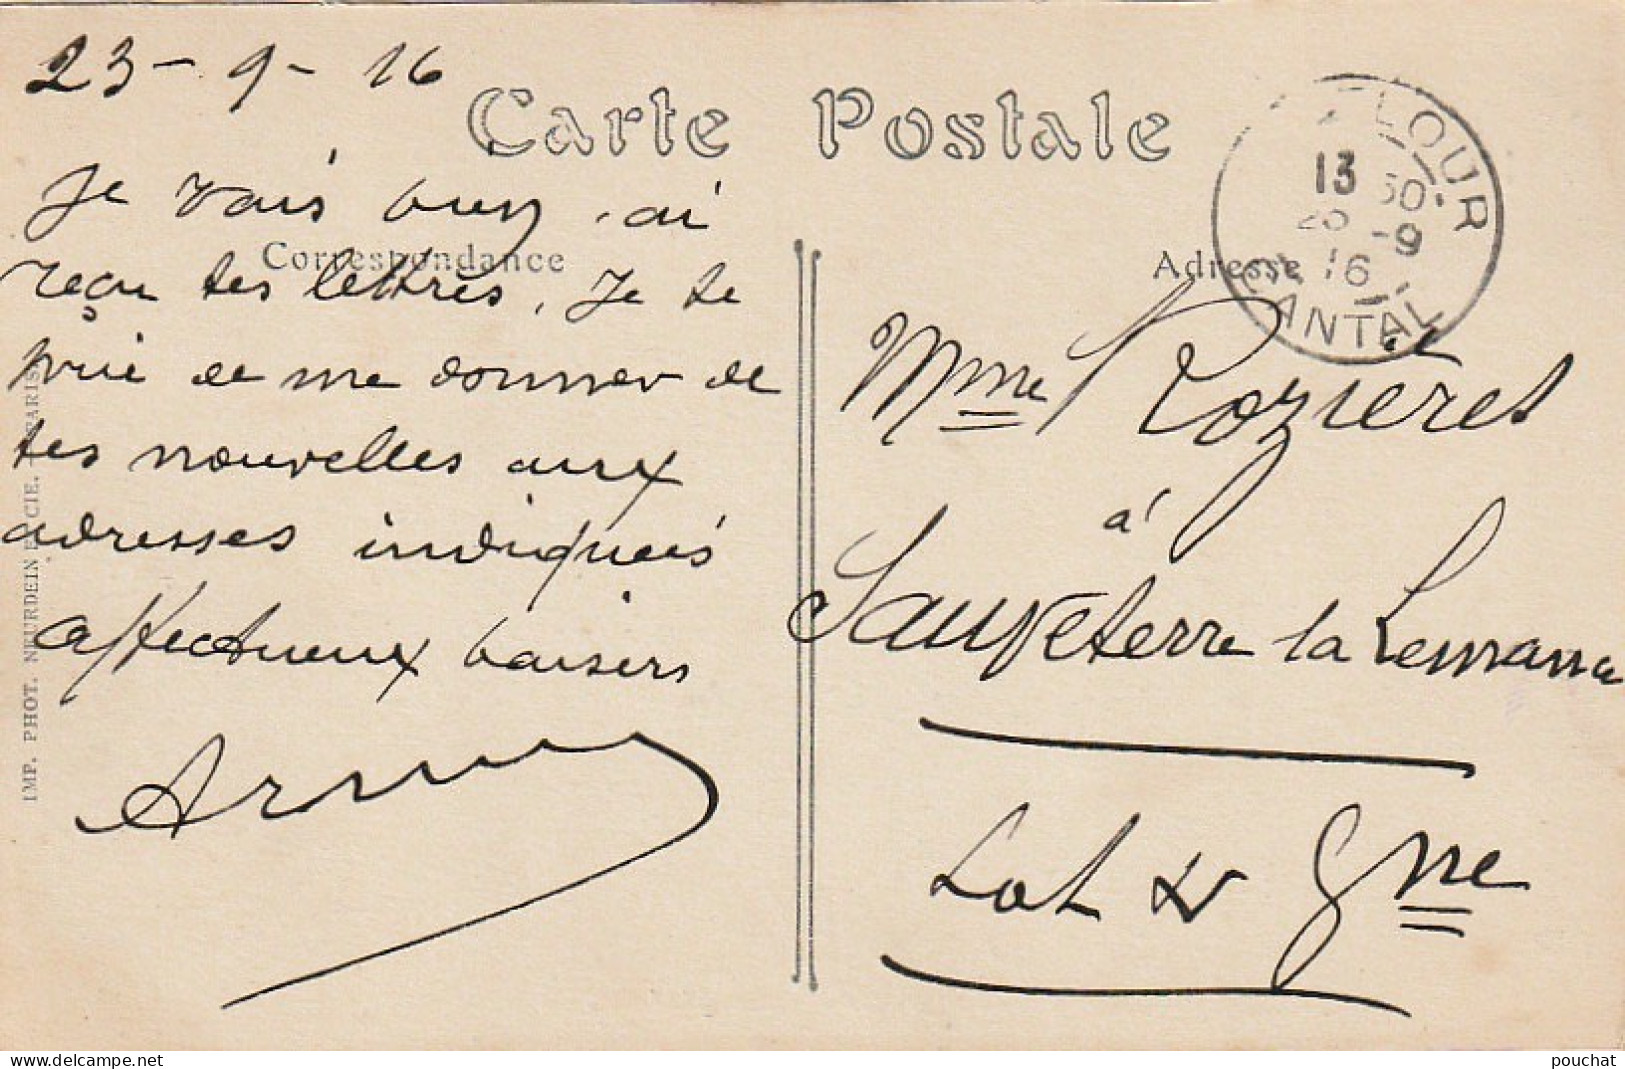 23 - 9 - 16
Carte Postale
Je vais bien, ai
Correspondance
reçu tes lettres. Je te
prie de me donner de
tes nouvelles aux
adresses indiqueés
affectueux baisers
IMP. PHOT. NEURDEIN ET CIE. - PARIS
LOUR
13 50
-9
16
CANTAL
Adresse
Mme Rozières
à
Sauveterre la Lemance
Lot & Gne
pouchat